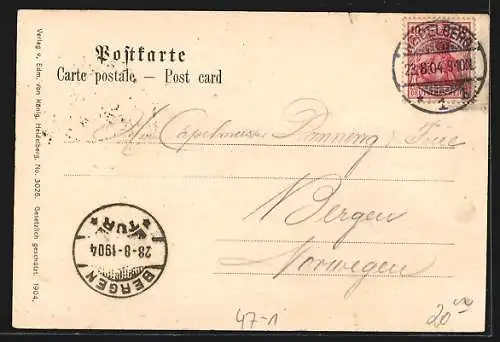 Postkarte
Carte postale. — Post card
HEIDELBERG
23.8.04.9-10N.
* 1 k
Capelmeister
Bergen
Norwegen
TUR
28-8-1904
BERGEN
Verlag v. Edm. von König, Heidelberg. No. 3025. Gesetzlich geschützt. 1904.
47-1
20